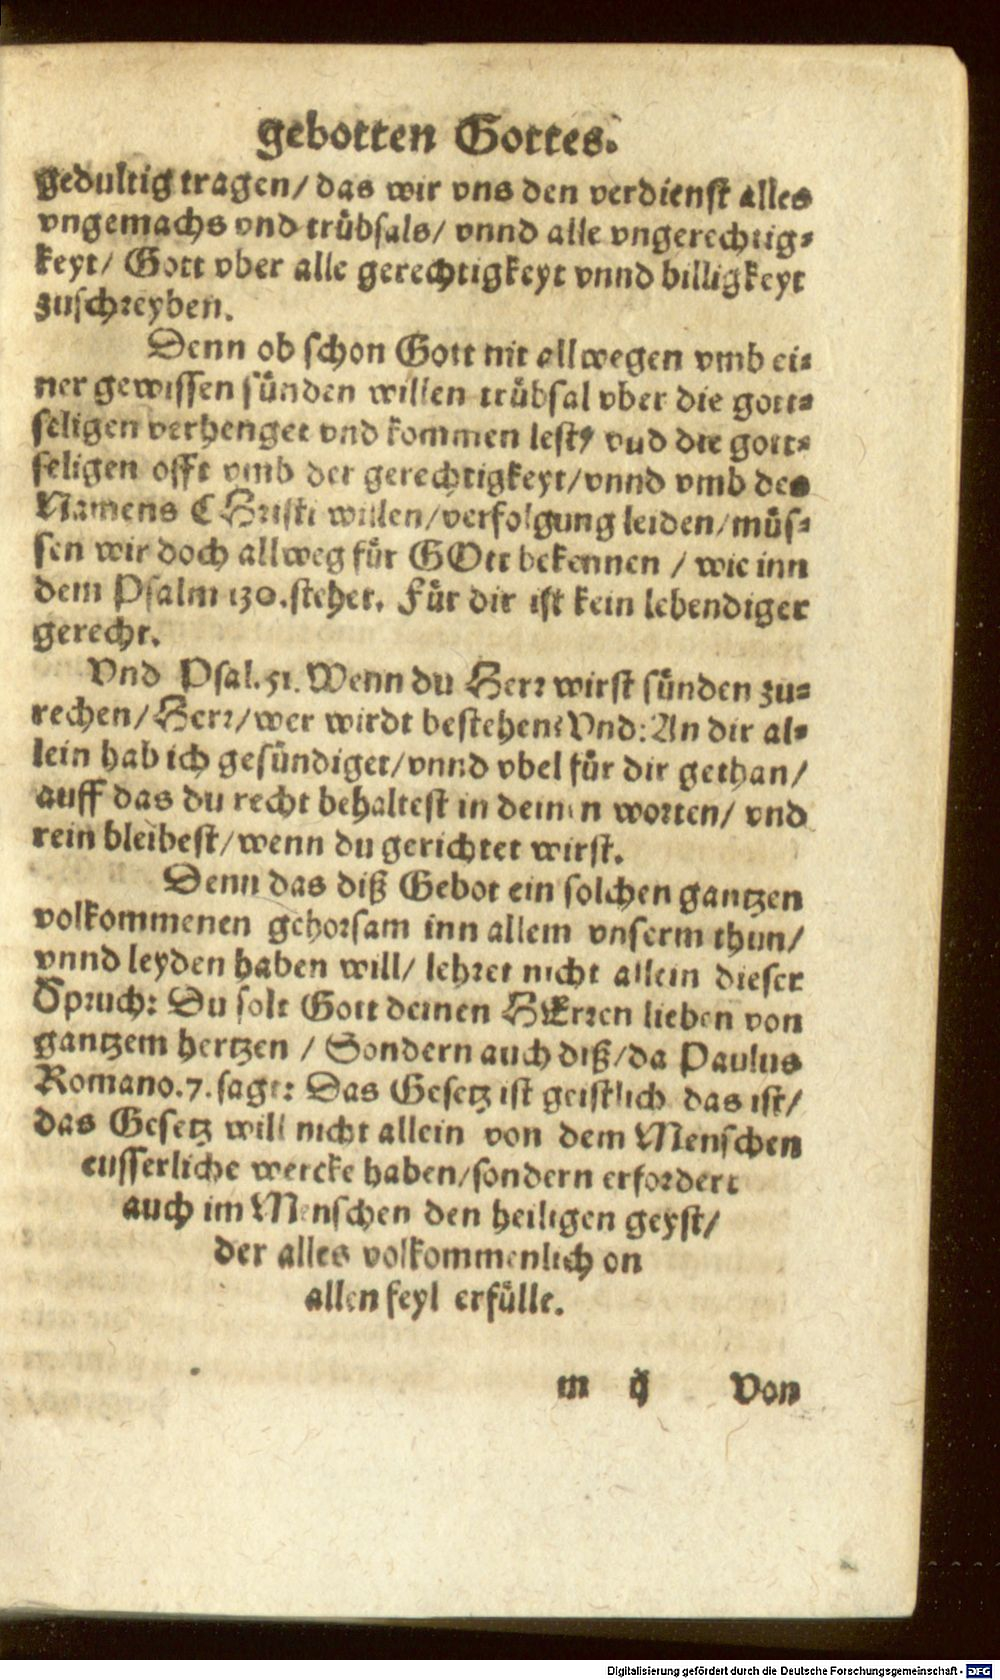 gebotten Gottes.
gedultig tragen/ das wir vns den verdienst alles
vngemachs vnd trübsals/ vnnd alle vngerechtig-
keyt/ Gott vber alle gerechtigkeyt vnnd billigkeyt
zuschreyben.
Denn ob schon Gott nit allwegen vmb ei-
ner gewissen sünden willen trübsal vber die gott-
seligen verhenget vnd kommen lest/ vnd die gott-
seligen offt vmb der gerechtigkeyt/ vnnd vmb des
Namens CHristi willen/ verfolgung leiden/ müs-
sen wir doch allweg für GOtt bekennen / wie inn
dem Psalm 130. stehet. Für dir ist kein lebendiger
gerecht.
Vnd Psal. 51. Wenn du Herr wirst sünden zu-
rechen/ Herr/ wer wirdt bestehen? Vnd: An dir al-
lein hab ich gesündiget/ vnnd vbel für dir gethan/
auff das du recht behaltest in deinen worten/ vnd
rein bleibest/ wenn du gerichtet wirst.
Denn das diß Gebot ein solchen gantzen
volkommenen gehorsam inn allem vnserm thun/
vnnd leyden haben will/ lehret nicht allein dieser
Spruch: Du solt Gott deinen HErren lieben von
gantzem hertzen / Sondern auch diß/ da Paulus
Romano. 7. sagt: Das Gesetz ist geistlich das ist/
das Gesetz will nicht allein von dem Menschen
eusserliche wercke haben/ sondern erfordert
auch im Menschen den heiligen geyst/
der alles volkommenlich on
allen feyl erfülle.
m ij Von
Digitalisierung gefördert durch die Deutsche Forschungsgemeinschaft - DFG